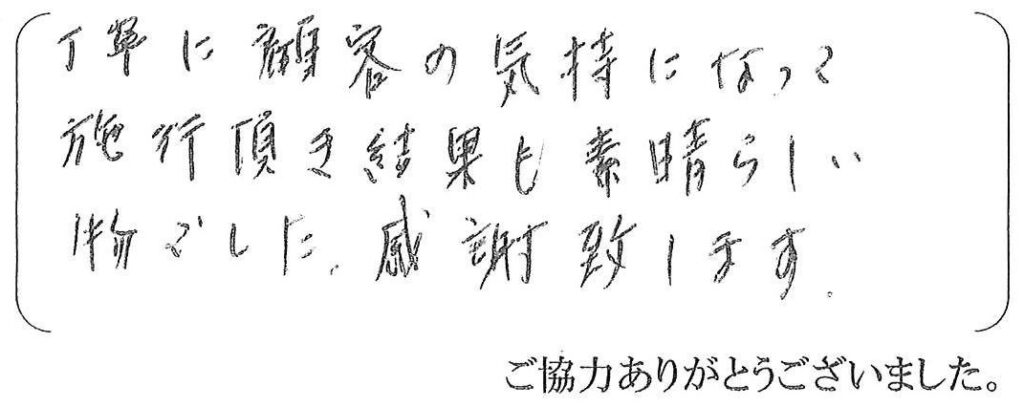 丁寧に顧客の気持になって
施行頂き結果も素晴らしい
物でした。感謝致します。
ご協力ありがとうございました。